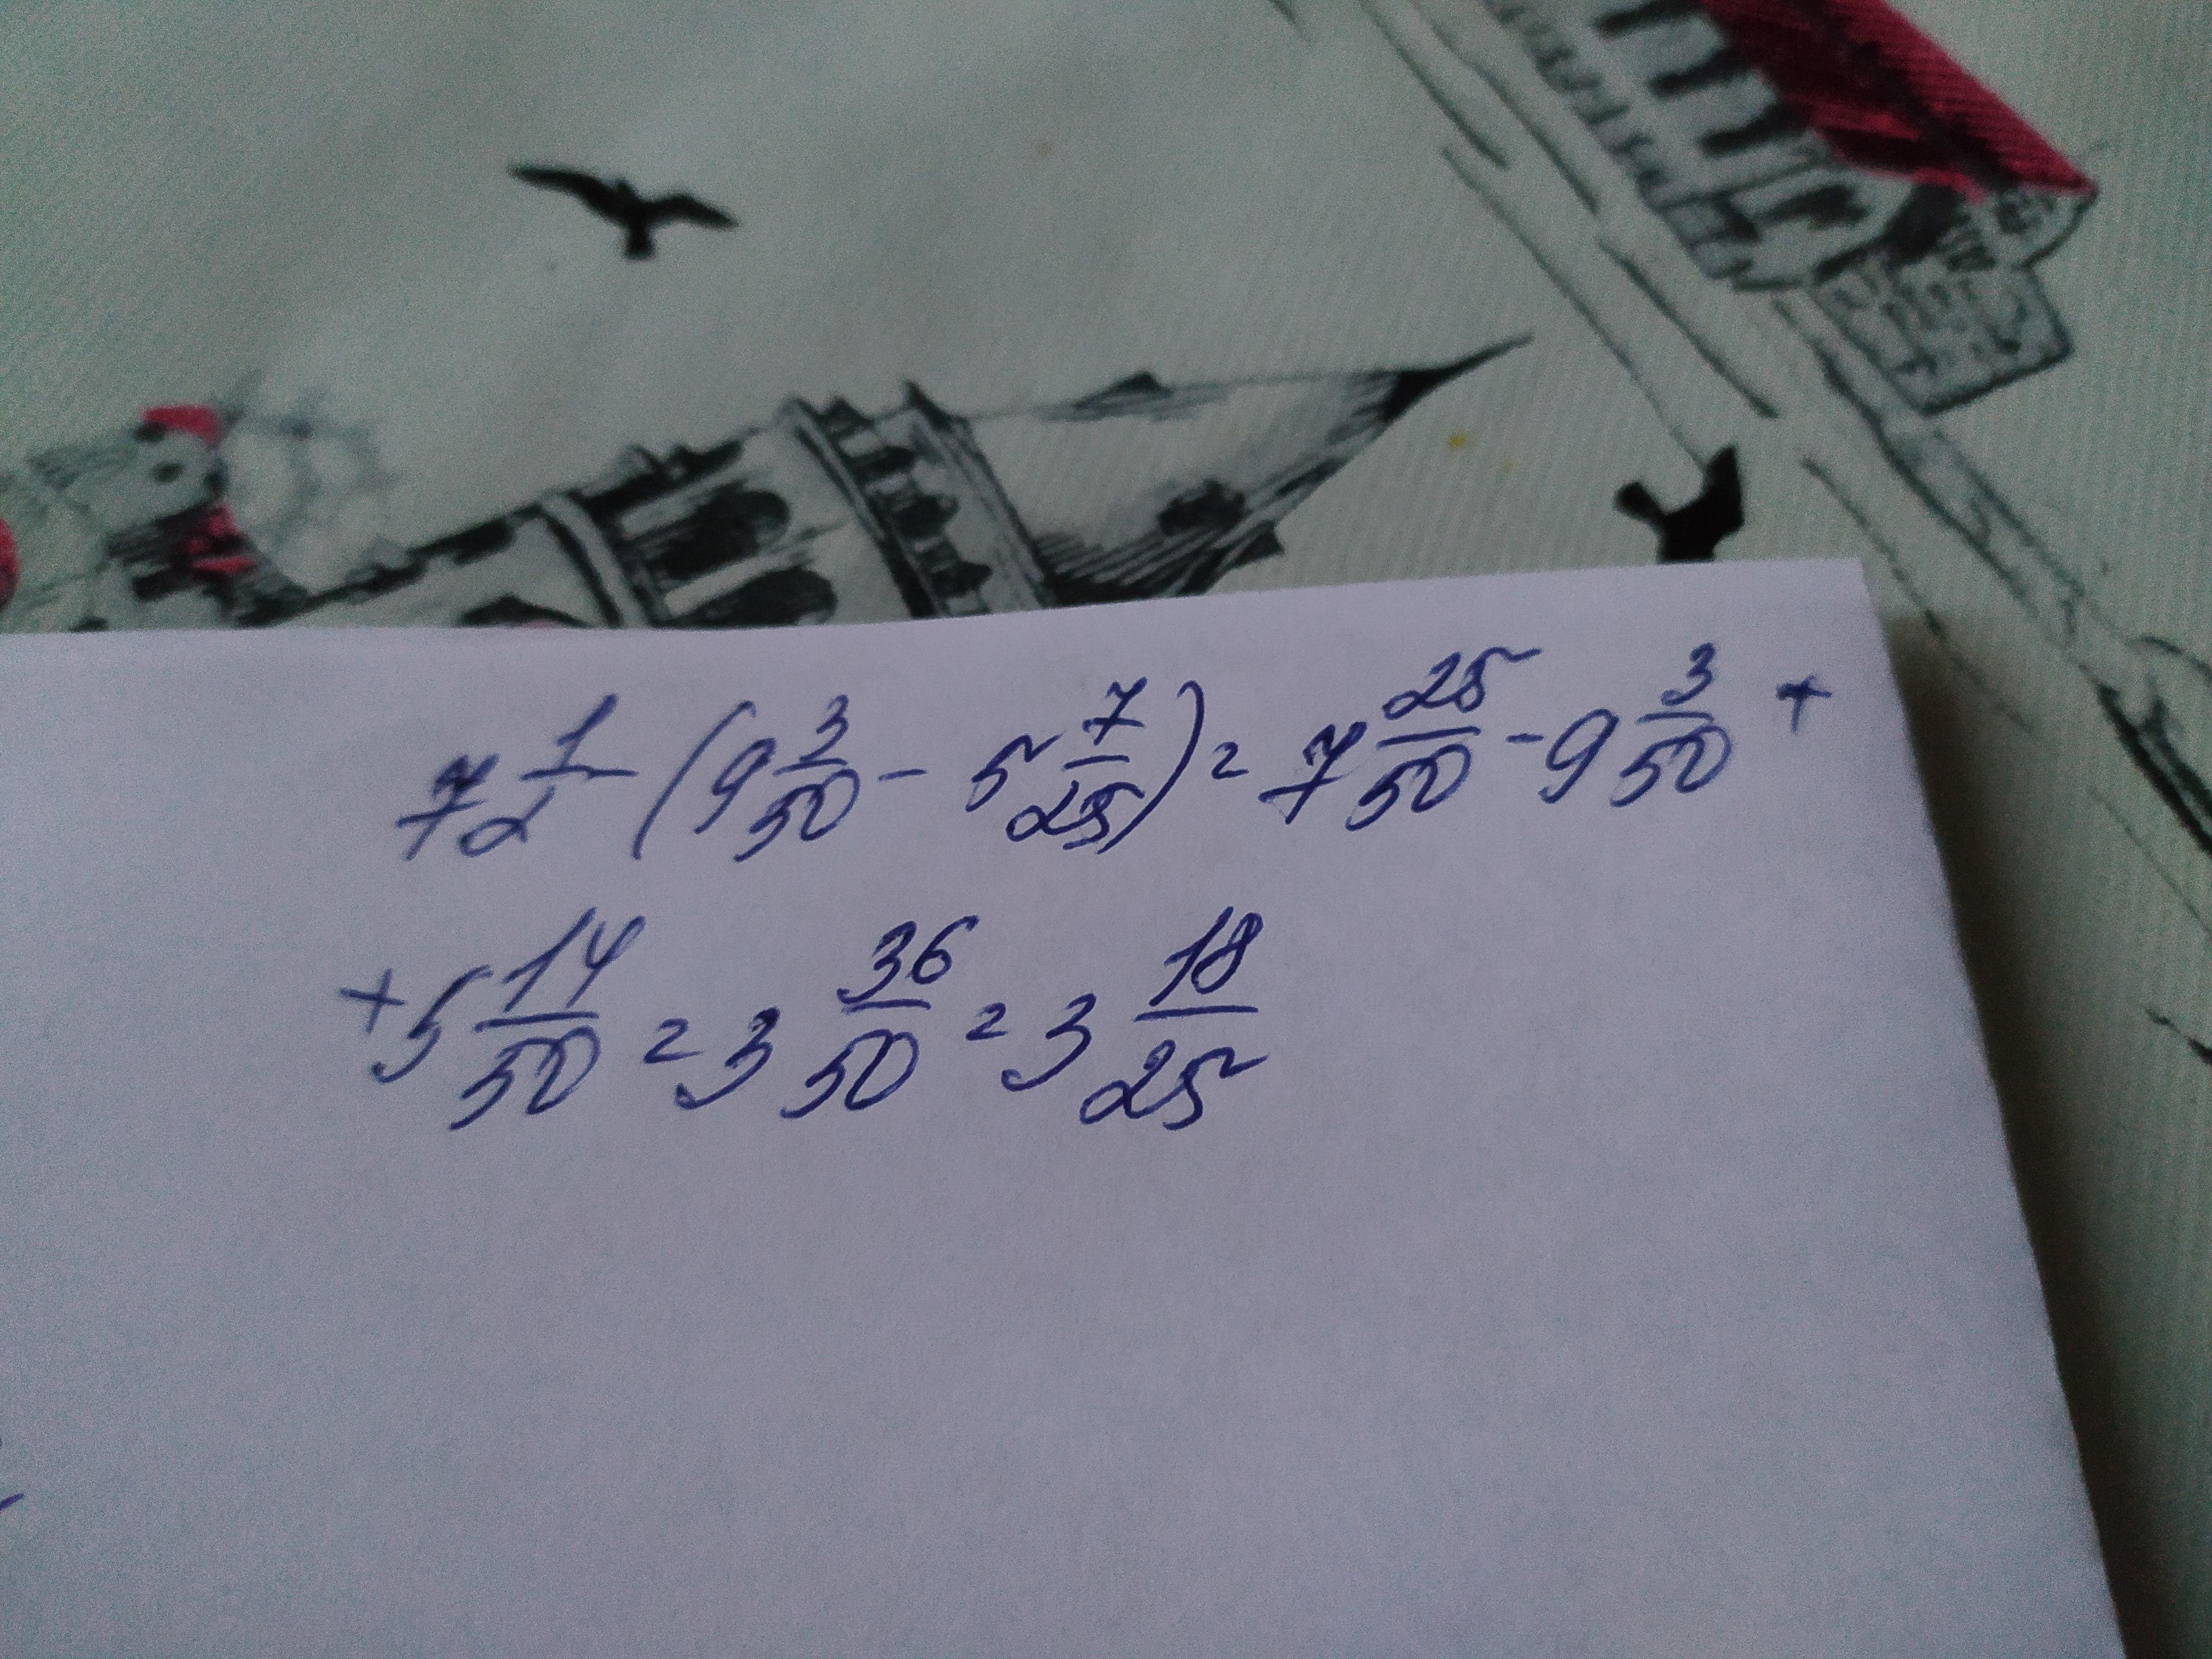 7 1/2 - (9 3/50 - 5 7/25) = 7 25/50 - 9 3/50 +
+ 5 14/50 = 3 36/50 = 3 18/25